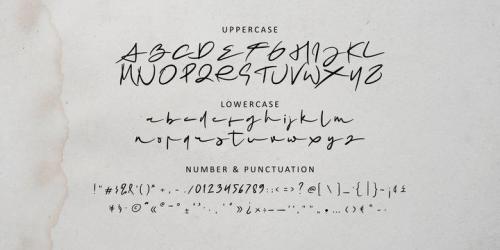 UPPERCASE
ABCDEFGHIJKL
MNOPQRSTUVWXYZ
LOWERCASE
abcdefghijklm
nopqrstuvwxyz
NUMBER & PUNCTUATION
!"#$%&'()*+,-./0123456789:;<=>?@[\]_{|}~¡¢£